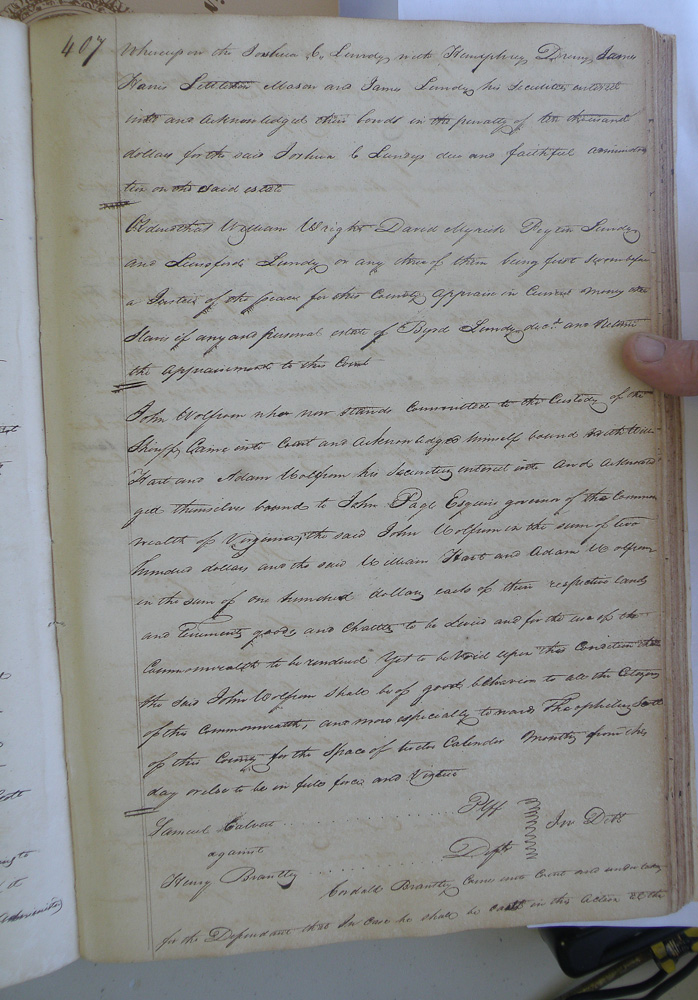 407
Whereupon the Joshua C. Lundy with Humphrey Drewry James
Harris Littleton Mason and James Lundy his securities entered
into and acknowledged their bonds in the penalty of ten thousand
dollars for the said Joshua C Lundys due and faithful administra
tion on the said estate
Ordered that William Wright David Myrick Peyton Lundy
and Lunsford Lundy or any three of them being first sworn before
a Justice of the peace for this County appraise in Current money the
Slaves if any and personal estate of Byrd Lundy decd. and Return
the appraisement to this Court
John Wolfrom who now stands Committed to the Custody of the
Sheriff, Came into Court and acknowledged himself bound with Will
Hart and Adam Wolfrom his Securities entered into and acknowled
ged themselves bound to John Page Esquire governor of the Common
wealth of Virginia, the said John Wolfrom in the sum of two
hundred dollars and the said William Hart and Adam Wolfrom
in the sum of one hundred dollars each of their respective lands
and Tenements goods and Chattles to be levied and for the use of the
Commonwealth to be rendered Yet to be Void upon this Condition that
the said John Wolfrom shall be of good behavior to all the Citizens
of this Commonwealth, and more especially towards Theophelus Scott
of this County for the Space of twelve Calender Months from this
day or else to be in full force and Virtue
Samuel Calvert .......... Plff
against } In Debt
Henry Brantley .......... Deft
Cordall Brantley Came into Court and undertakes
for the Defendant that In case he shall be cast in this action at the